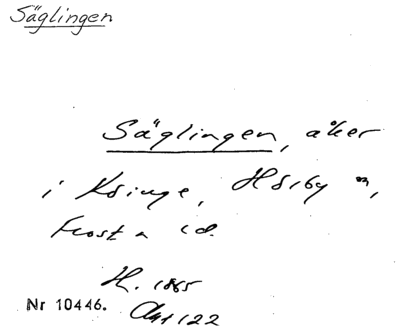 Säglingen
Säglingen, åker
i Ksinge, Hörby sn,
Frosta hd.
H. 1865
Nr 10446. 122